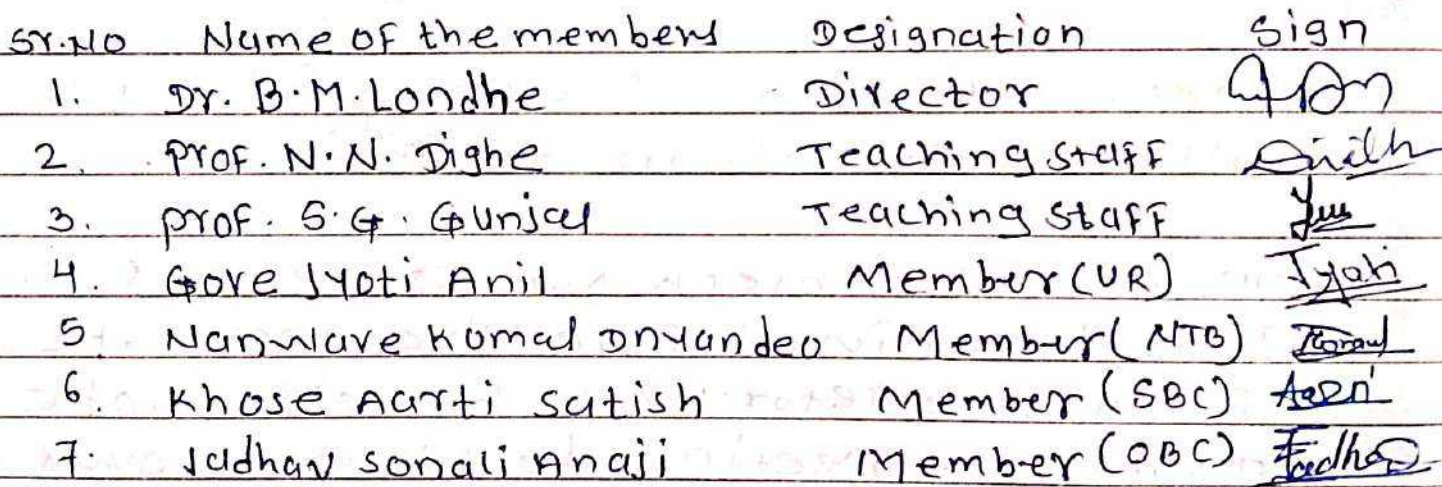 Sr.No Name of the members Designation Sign
1. Dr. B.M. Londhe Director
2. Prof. N.N. Dighe Teaching staff
3. Prof. S.G. Gunjal Teaching staff
4. Gore Jyoti Anil Member (UR) Jyoti
5. Nanware Komal Dnyandeo Member (NTB) Komal
6. Khose Aarti Satish Member (SBC)
7. Jadhav Sonali Anaji Member (OBC)